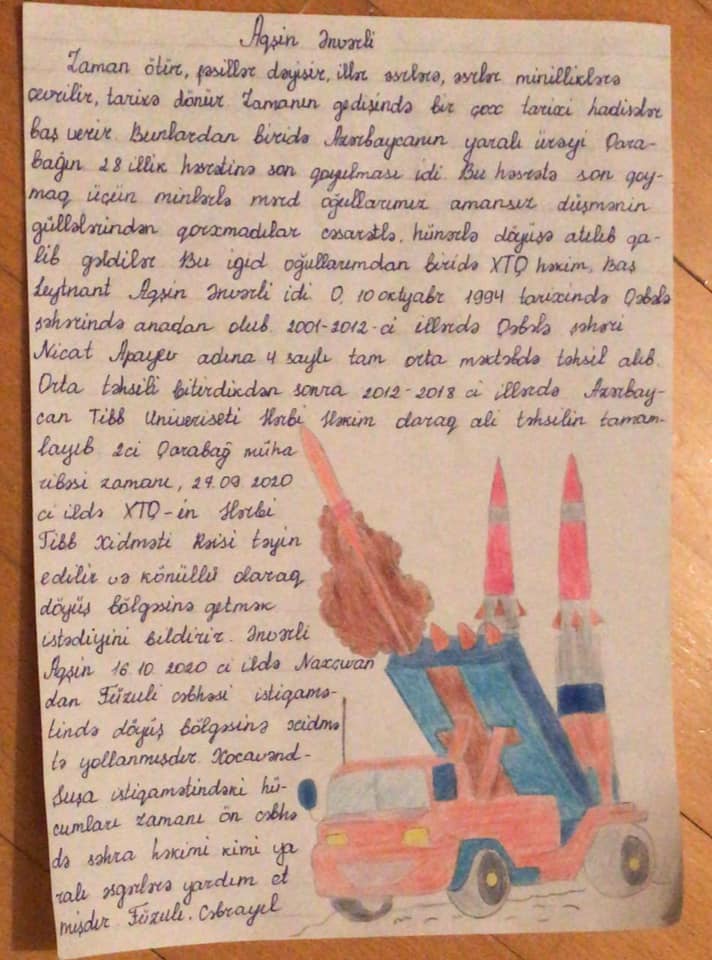 Aqşin Ənvərli
Zaman ötür, fəsillər dəyişir, illər əsrlərə, əsrlər minilliklərə
çevrilir, tarixə dönür. Zamanın gedişində bir çox tarixi hadisələr
baş verir. Bunlardan biridə Azərbaycanın yaralı ürəyi Qara-
bağın 28 illik həsrətinə son qoyulması idi. Bu həsrətə son qoy-
maq üçün minlərlə mərd oğullarımız amansız düşmənin
güllələrindən qorxmadılar cəsarətlə, hünərlə döyüşə atılıb qa-
lib gəldilər. Bu igid oğullarımdan biridə XTQ həkim, Baş
Leytnant Aqşin Ənvərli idi. O, 10 oktyabr 1994 tarixində Qəbələ
şəhərində anadan olub. 2001-2012-ci illərdə Qəbələ şəhəri
Nicat Apayev adına 4 saylı tam orta məktəbdə təhsil alıb.
Orta təhsili bitirdikdən sonra 2012-2018 ci illərdə Azərbay-
can Tibb Univeriseti Hərbi Həkim olaraq ali təhsilin tamam-
layıb 2ci Qarabağ müha
ribəsi zamanı, 27.09 2020
ci ildə XTQ-in Hərbi
Tibb Xidməti Rəisi təyin
edilir və könüllü olaraq
döyüş bölgəsinə getmək
istədiyini bildirir. Ənvərli
Aqşin 16.10.2020 ci ildə Naxçıvan
dan Füzuli cəbhəsi istiqamə-
tində döyüş bölgəsinə xidmə
tə yollanmışdır. Xocavənd-
Şuşa istiqamətindəki hü-
cumları zamanı ön cəbhə
də səhra həkimi kimi ya
ralı əsgərlərə yardım et
mişdir. Füzuli. Cəbrayıl